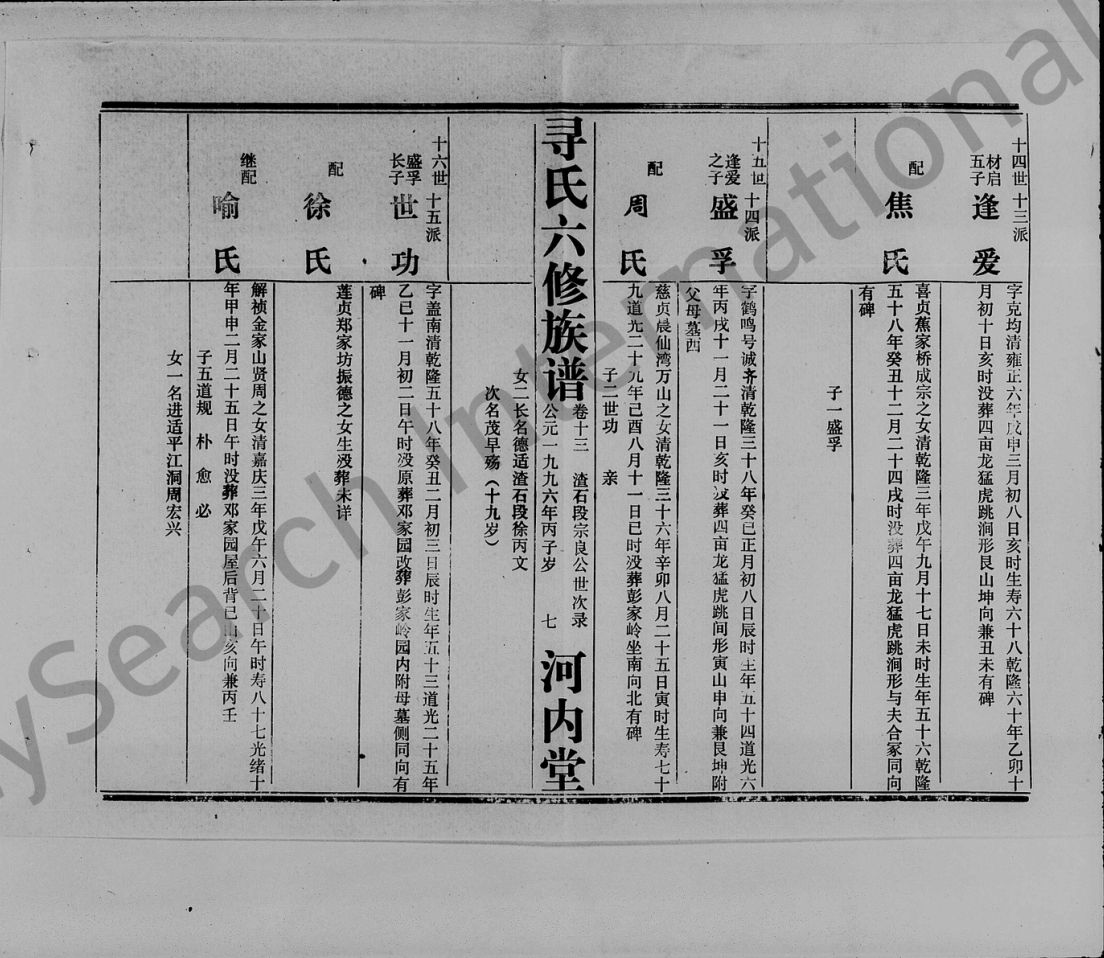 十四世 十三派
材启
五子
逢爱
字克均清雍正六年戊申三月初八日亥时生寿六十八乾隆六十年乙卯十
月初十日亥时没葬四亩龙猛虎跳涧形艮山坤向兼丑未有碑
配
焦氏
喜贞蕉家桥成宗之女清乾隆三年戊午九月十七日未时生年五十六乾隆
五十八年癸丑十二月二十四戌时没葬四亩龙猛虎跳涧形与夫合冢同向
有碑
子一盛孚
十五世 十四派
逢爱
之子
盛孚
字鹤鸣号诚齐清乾隆三十八年癸巳正月初八日辰时生年五十四道光六
年丙戌十一月二十一日亥时没葬四亩龙猛虎跳间形寅山申向兼艮坤附
父母墓西
配
周氏
慈贞晨仙湾万山之女清乾隆三十六年辛卯八月二十五日寅时生寿七十
九道光二十九年己酉八月十一日巳时没葬彭家岭坐南向北有碑
子二世功 亲
寻氏六修族谱
卷十三 渣石段宗良公世次录
公元一九九六年丙子岁 七
河内堂
女二长名德适渣石段徐丙文
次名茂早殇(十九岁)
十六世 十五派
盛孚
长子
世功
字盖南清乾隆五十八年癸丑二月初三日辰时生年五十三道光二十五年
乙巳十一月初二日午时没原葬邓家园改葬彭家岭园内附母墓侧同向有
碑
配
徐氏
莲贞郑家坊振德之女生没葬未详
继配
喻氏
解祯金家山贤周之女清嘉庆三年戊午六月二十日午时寿八十七光绪十
年甲申二月二十五日午时没葬邓家园屋后背巳山亥向兼丙壬
子五道规 朴 愈 必
女一名进适平江洞周宏兴
ySearch International